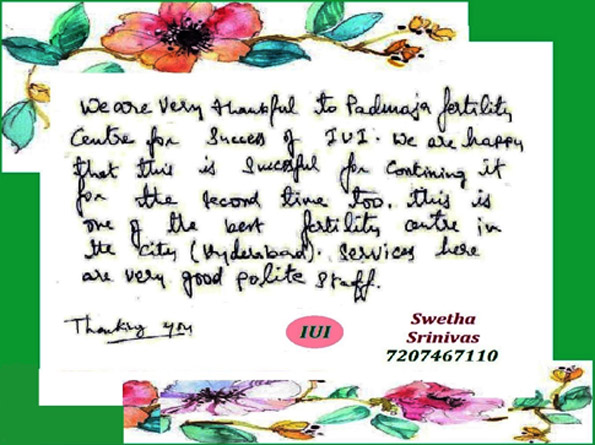 We are very thankful to Padmaja fertility
Centre for Success of IUI. We are happy
that this is Successful for Contining it
for the second time too. this is
one of the best fertility centre in
the city (Hyderabad). Services here
are very good polite staff.
Thanking you
IUI
Swetha
Srinivas
7207467110